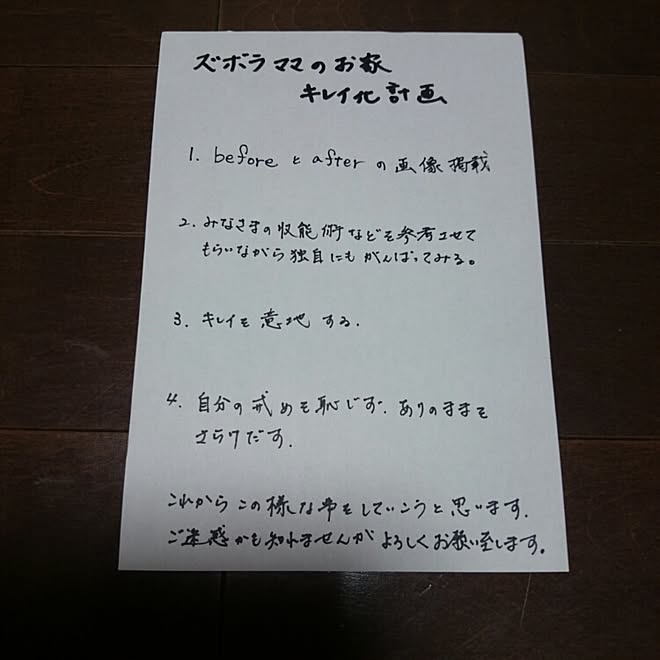 ズボラママのお家
キレイ化計画
1. beforeとafterの画像掲載
2. みなさまの収能術などを参考させて
もらいながら独自にもがんばってみる。
3. キレイを意地する.
4. 自分の戒めを恥じず.ありのままを
さらけだす.
これからこの様な事をしていこうと思います.
ご迷惑かも知れませんがよろしくお願い致します。